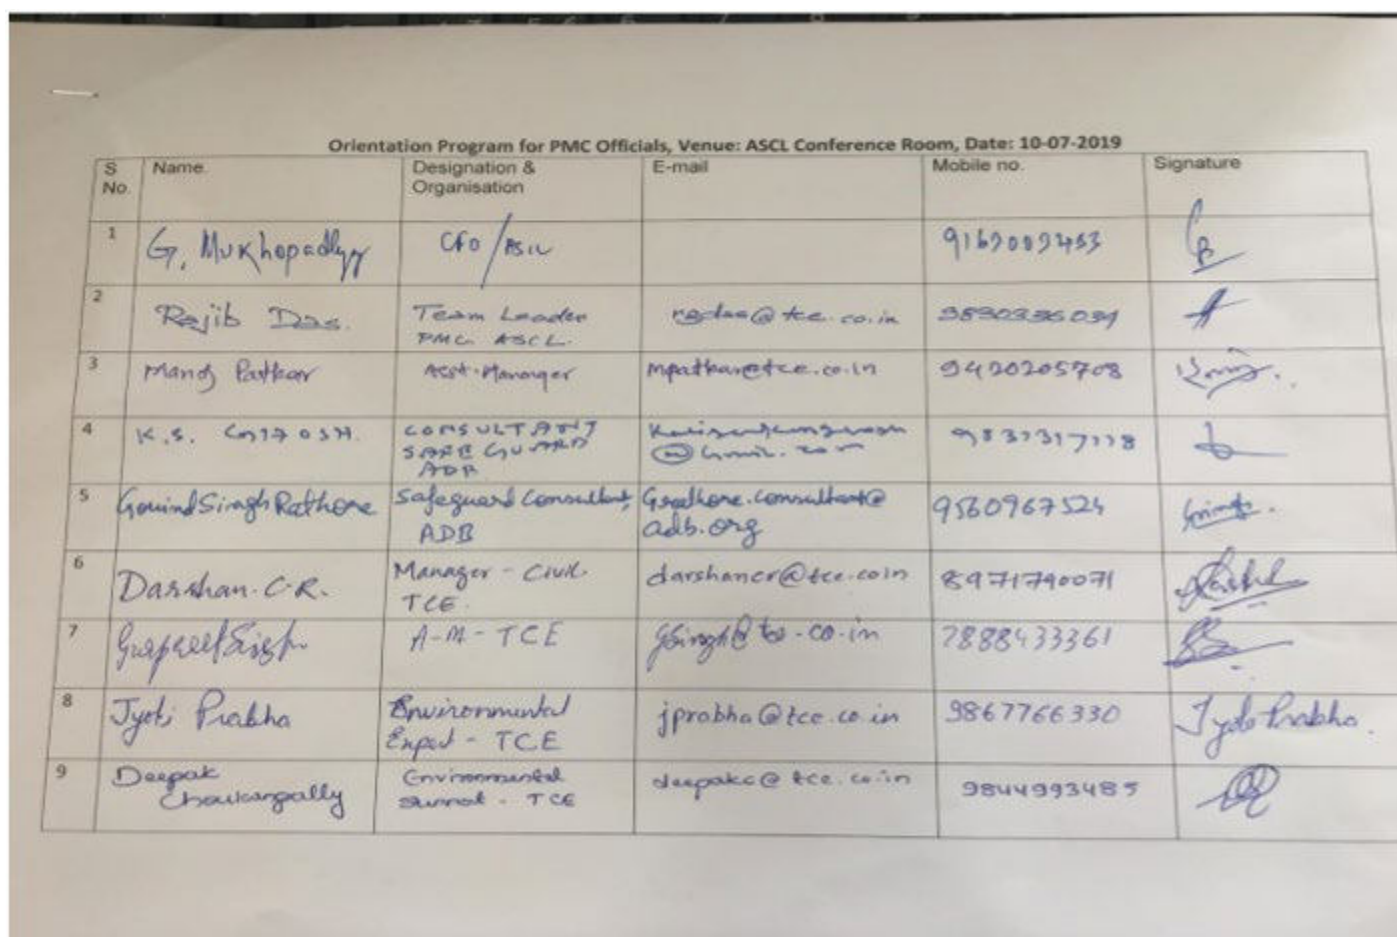 Orientation Program for PMC Officials, Venue: ASCL Conference Room, Date: 10-07-2019
S No. Name. Designation & Organisation E-mail Mobile no. Signature
1 G. Mukhopadhyy CFO / 9163009453
2 Rajib Das. Team Leader PMC ASCL. @tce.co.in
3 Manoj Patkar Asst. Manager mpatkar@tce.co.in 9420205708
4 K.S. CONSULTANT SAFE GUARD ADB
5 Govind Singh Rathore Safeguard Consultant, ADB Grathore.consultant@adb.org 9560967524
6 Darshan.C.R. Manager - Civil. TCE. darshancr@tce.coin 8971740071
7 Gurpreet Singh A-M-TCE gsingh@tce.co.in 7888433361
8 Jyoti Prabha Environmental Expert - TCE jprabha@tce.co.in 9867766330 Jyoti Prabha.
9 Deepak Environmental - TCE deepakc@tce.co.in 9844993485